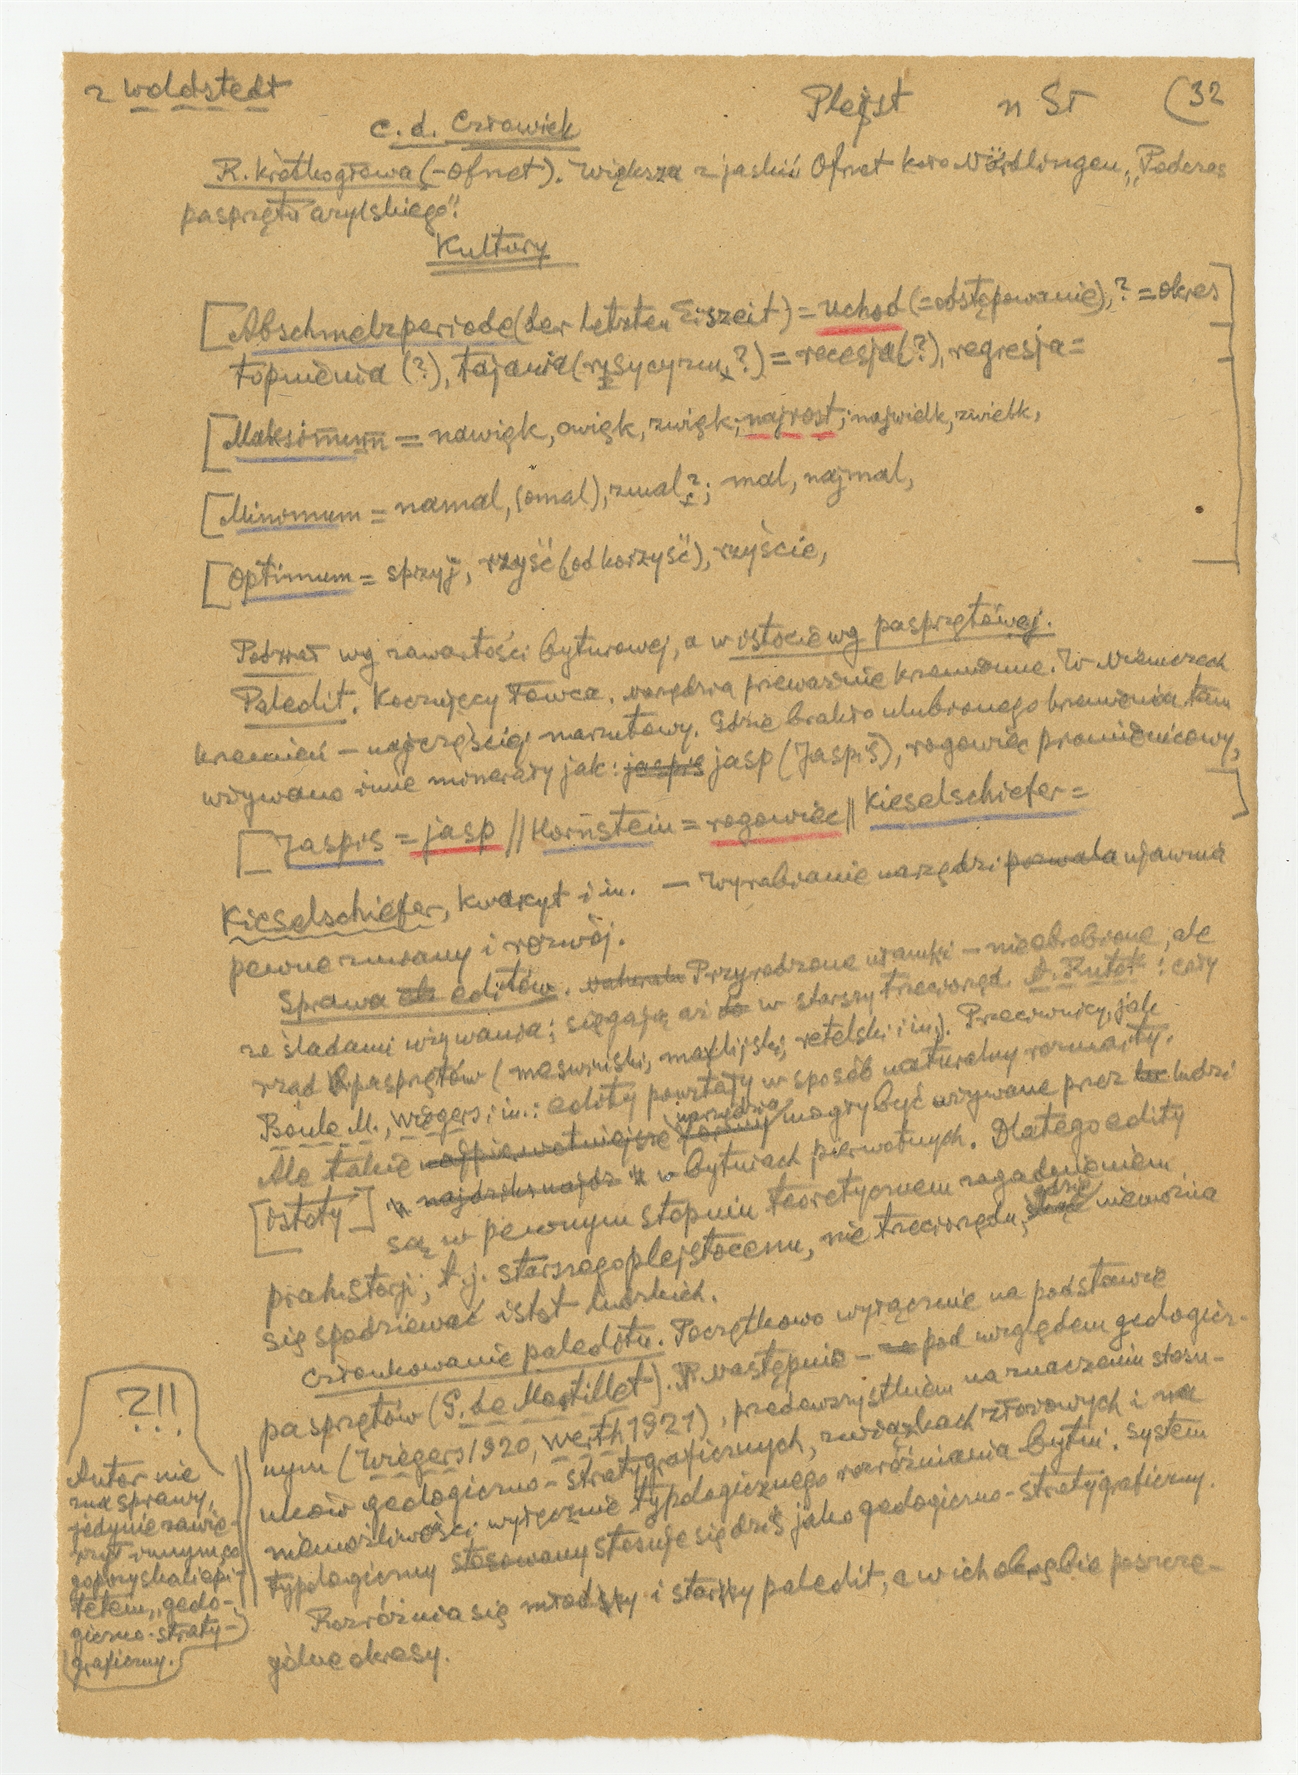 z Woldstedt
Plejst n St (32
c. d. Człowiek
R. krótkogłowa (-Ofnet). Większa z jaskiń Ofnet koło Nördlingen, „Podczas
pasprzętu azylskiego".
Kultury
[Abschmelzperiode (der letzten Eiszeit) = uchod (=odstępowanie), ? = okres
topnienia (?), tajania (?) = recesja (?), regresja =
[Maksimum = nawięk, owięk, zwięk; najrost; najwielk, zwielk,
[Minimum = namal, (omal), zmal ?; mal, najmal,
[Optimum = sprzyj, rzyść (od korzyść), rzyście,
Podział wg zawartości byturowej, a w istocie wg pasprzętowej.
Paleolit. Koczujący łowca. Narzędzia przeważnie krzemienne. W Niemczech
krzemień – najczęściej narzutowy. Gdzie brakło ulubionego krzemienia tam
używano inne minerały jak: jaspis jasp (Jaspis), rogowiec promienicowy,
[Jaspis = jasp // Hornstein = rogowiec // Kieselschiefer = ]
Kieselschiefer, kwarcyt i in. – Wyrabianie narzędzi pozwala ujawnia
pewne zmiany i rozwój.
Sprawa eolitów. Przyrodzone ułamki – nieobrobione, ale
ze śladami używania; sięgają aż do w starszy trzeciorzęd. A. Rutot: cały
rząd pasprzętów (meswiński, maflijski, retelski i in.). Przeciwnicy, jak
Boule M., Wiegers i in.: eolity powstały w sposób naturalny rozmaity.
Ale takie najpierwotniejsze narzędzia mogły być używane przez ludzi
[istoty] w bytniach pierwotnych. Dlatego eolity
są w pewnym stopniu teoretycznem zagadnieniem
prahistorji, t.j. starszego plejstocenu, nie trzeciorzędu, gdzie niemożna
się spodziewać istot ludzkich.
Członkowanie paleolitu. Początkowo wyłącznie na podstawie
pasprzętów (G. de Mortillet). Następnie – pod względem geologicz-
nym (Wiegers 1920, Werth 1921), przedewszystkiem na znaczeniu stosu-
nków geologiczno-stratygraficznych, związkach złożowych i na
niemożliwości wyłącznie typologicznego rozróżniania bytni. System
typologiczny stosowany stosuje się dziś jako geologiczno-stratygraficzny.
Rozróżnia się młodszy i starszy paleolit, a w ich obrębie poszcze-
gólne okresy.
?!!
Autor nie
zna sprawy,
jedynie
go epi-
tetem „geolo-
giczno-straty-
graficzny.